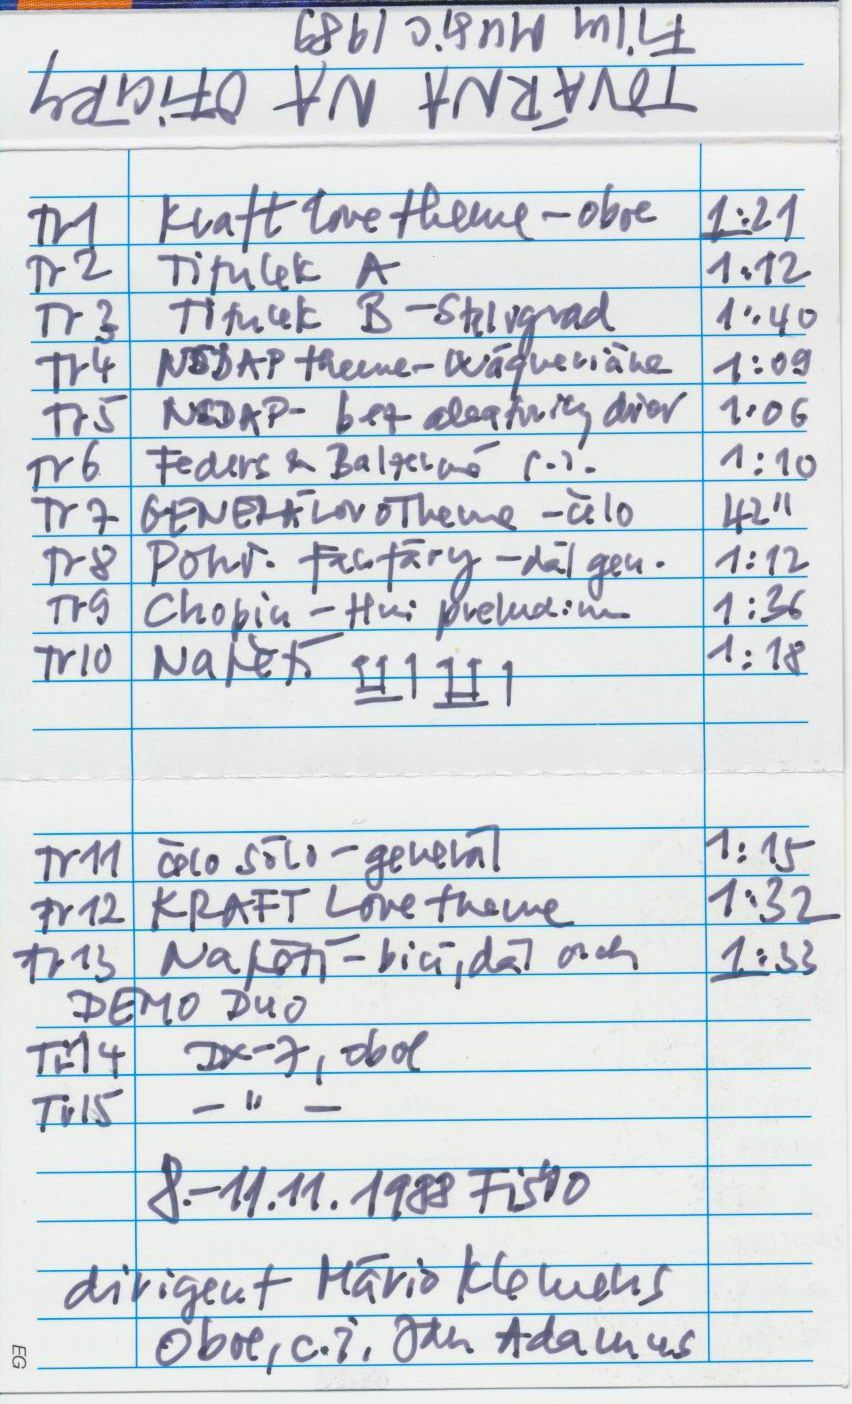 TOVÁRNA NA OFICÍRY
Film Music 1989
Tr1 Kraft love theme – oboe 1:21
Tr2 Titulek A 1:12
Tr3 Titulek B – Stalingrad 1:40
Tr4 NSDAP theme – Wágneriáne 1:09
Tr5 NSDAP – bez aleatoriky dřev 1:06
Tr6 c.i. 1:10
Tr7 GENERÁLovo Theme – čelo 42"
Tr8 Pohř. Fanfáry – dál gen. 1:12
Tr9 Chopin – Hmi preludium 1:36
Tr10 Napětí !! ! !! ! 1:18
Tr11 čelo sólo – generál 1:15
Tr12 KRAFT Love theme 1:32
Tr13 Napětí – bicí, dál orch 1:33
DEMO DUO
Tr14 DX-7, oboe
Tr15 – " –
8.–11.11.1988 FISYO
dirigent Mário Klemens
Oboe, c.i. Jan Adamus
EG